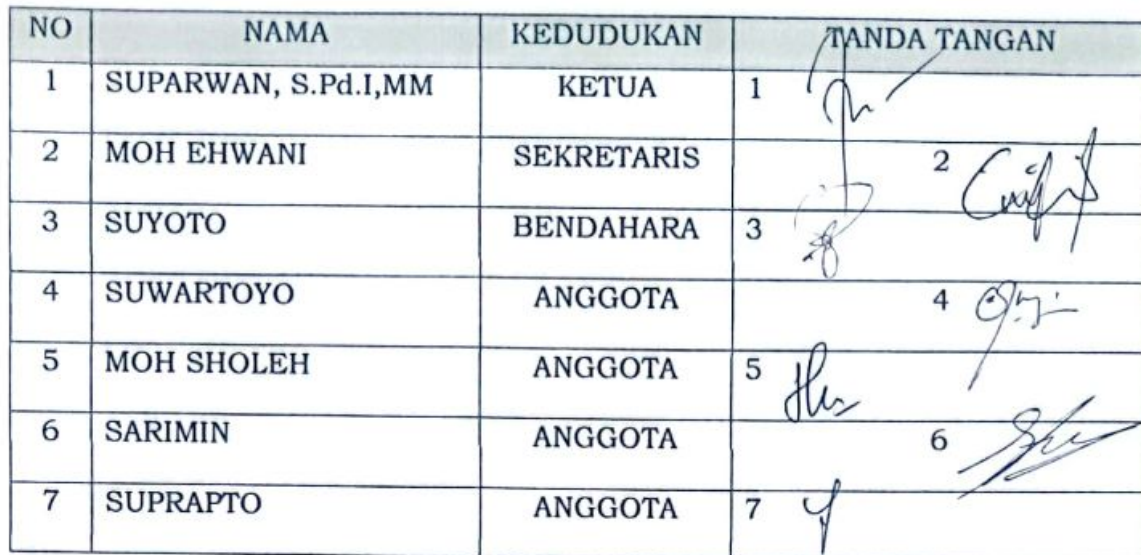 NO NAMA KEDUDUKAN TANDA TANGAN
1 SUPARWAN, S.Pd.I,MM KETUA 1
2 MOH EHWANI SEKRETARIS 2
3 SUYOTO BENDAHARA 3
4 SUWARTOYO ANGGOTA 4
5 MOH SHOLEH ANGGOTA 5
6 SARIMIN ANGGOTA 6
7 SUPRAPTO ANGGOTA 7